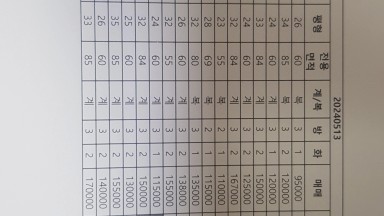 20240513
평형 전용면적 계/복 방 화 매매
26 60 복 3 1 95000
34 85 복 3 2 120000
24 60 계 3 1 120000
33 84 계 3 2 150000
24 60 계 3 2 125000
32 84 계 3 2 167000
23 55 계 2 1 110000
28 69 복 2 1 115000
32 80 복 3 1 135000
26 60 계 3 2 138000
32 55 계 3 2 155000
24 60 계 3 1 115000
32 84 계 3 2 150000
25 60 계 3 2 130000
35 85 계 3 2 155000
26 60 계 3 2 140000
33 85 계 3 2 170000